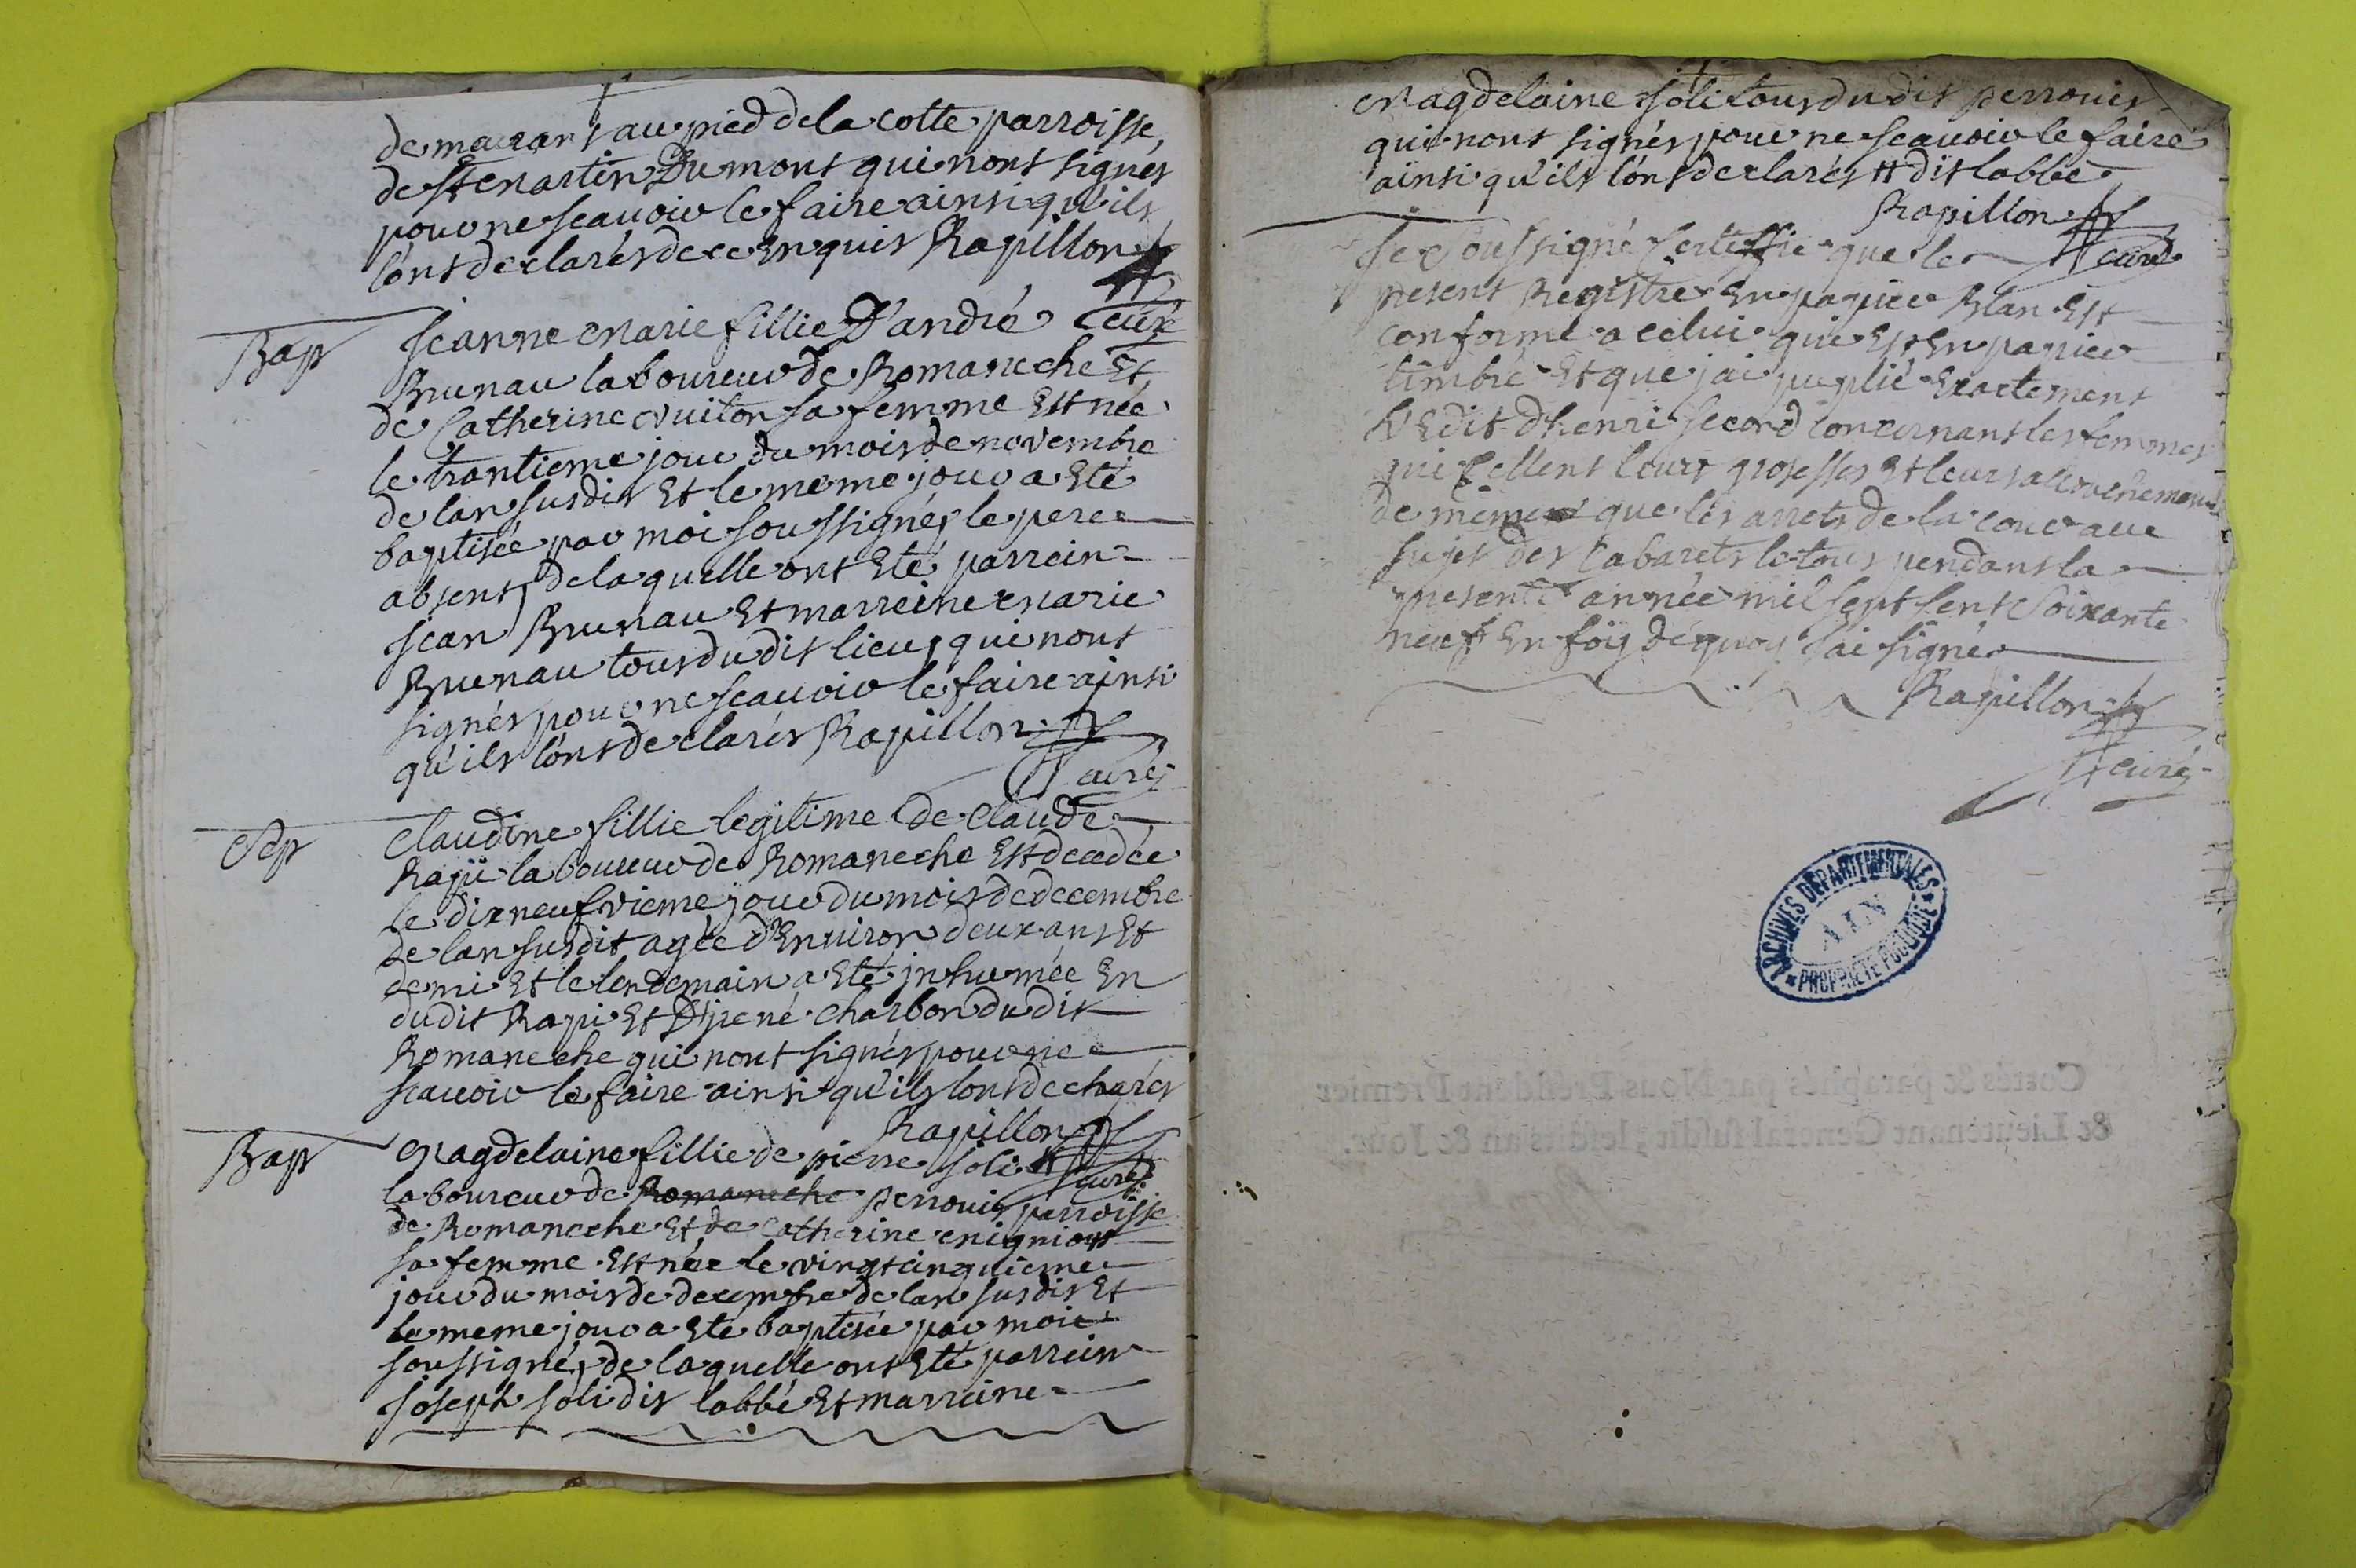 de maran s au pied de la cotte parroisse,
de st Martin Dumont qui nont signes
pour ne scauoir le faire ainsi qu'ils
lónt declarés de ce Enquis Rapillon
curé
Bap Jeanne Marie fillie D'andré
Brunau laboureur de Romaneche Et
de Catherine vuiton sa femme Est née
le trantieme jour du mois de novembre
de lan susdit Et le meme jour a Eté
baptisée par moi soussigné, le pere
absent, de la quelle ont Eté parrein
jean Brunau Et marreine Marie
Brunau tous du dit lieu, qui nont
signés pour ne scauoir le faire ainsi
qu'ils lónt declarés Rapillon
curé
Sep Claudine fillie legitime de Claude
Rapii laboureur de Romaneche Est decedée
le dixneufvieme jour du mois de decembre
de lan susdit agée d'Enuiron deux ans Et
demi Et le lendemain a Eté inhumée En
du dit Rapi Et D' jrené charbon du dit
Romaneche qui nont signés pour ne
scauoir le faire ainsi qu'ils lont declarés
Rapillon
curé
Bap Magdelaine fillie de pierre soli
laboureur de Romaneche perrouis parroisse
de Romaneche Et de Catherine Migniot
sa femme Est née le vingt cinquieme
jour du mois de decembre de lan susdit Et
le meme jour a Eté baptisée par moi
soussigné, de la quelle ont Eté parrein
joseph soli dit labbé Et marreine
Magdelaine soli tous du dit perrouis
qui nont signés pour ne scauoir le faire
ainsi qu'ils lónt declarés # dit labbé
Rapillon
curé
Je Soussigné Certiffie que le
present Registre En papier Blan Est
conforme a celui qui Est En papier
timbré Et que jai puplié Exactement
L'Edit dhenri second concernant les femmes
qui Cellent leurs grosesses Et leurs accouchemens
de même que les arrets de la cour au
sujet des Cabarets le tous pendant la
presente année mil sept Cent Soixante
neuf En foy de quoy J'ai signé
Rapillon
curé
ARCHIVES DÉPARTEMENTALES
AIN
PROPRIÉTÉ PUBLIQUE
Cottés & paraphés par Nous Président Premier
& Lieutenant General susdit; lesdits an & Jour.